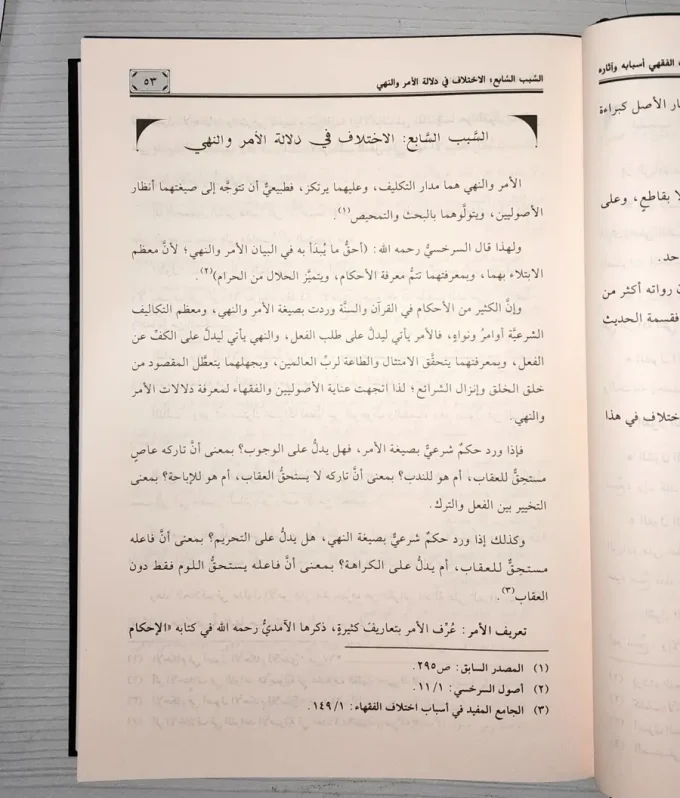 السَّبب السَّابع: الاختلاف في دلالة الأمر والنهي
٥٣
السَّبب السَّابع: الاختلاف في دلالة الأمر والنهي
الأمر والنهي هما مدار التكليف، وعليهما يرتكز، فطبيعيٌّ أن تتوجَّه إلى صيغتهما أنظار
الأصوليين، ويتولَّوهما بالبحث والتمحيص(١).
ولهذا قال السرخسيُّ رحمه الله: (أحقُّ ما يُبْدَأ به في البيان الأمر والنهي؛ لأنَّ معظم
الابتلاء بهما، وبمعرفتهما تتمُّ معرفة الأحكام، ويتميَّز الحلال من الحرام)(٢).
وإنَّ الكثير من الأحكام في القرآن والسنَّة وردت بصيغة الأمر والنهي، ومعظم التكاليف
الشرعيَّة أوامرُ ونواهٍ، فالأمر يأتي ليدلَّ على طلب الفعل، والنهي يأتي ليدلَّ على الكفّ عن
الفعل، وبمعرفتهما يتحقَّق الامتثال والطاعة لربِّ العالمين، وبجهلهما يتعطَّل المقصود من
خلق الخلق وإنزال الشرائع؛ لذا اتجهت عناية الأصوليين والفقهاء لمعرفة دلالات الأمر
والنهي.
فإذا ورد حكمٌ شرعيٌّ بصيغة الأمر، فهل يدلُّ على الوجوب؟ بمعنى أنَّ تاركه عاصٍ
مستحِقٌّ للعقاب، أم هو للندب؟ بمعنى أنَّ تاركه لا يستحقُّ العقاب، أم هو للإباحة؟ بمعنى
التخيير بين الفعل والترك.
وكذلك إذا ورد حكمٌ شرعيٌّ بصيغة النهي، هل يدلُّ على التحريم؟ بمعنى أنَّ فاعله
مستحِقٌّ للعقاب، أم يدلُّ على الكراهة؟ بمعنى أنَّ فاعله يستحقُّ اللوم فقط دون
العقاب(٣).
تعريف الأمر: عُرِّف الأمر بتعاريفَ كثيرةٍ، ذكرها الآمديُّ رحمه الله في كتابه «الإحكام
(١) المصدر السابق: ص٢٩٥.
(٢) أصول السرخسي: ١١/١.
(٣) الجامع المفيد في أسباب اختلاف الفقهاء: ١٤٩/١.
الفقهي أسبابه وآثاره
الأصل كبراءة
بقاطعٍ، وعلى
رواته أكثر من
فقسمة الحديث
في هذا